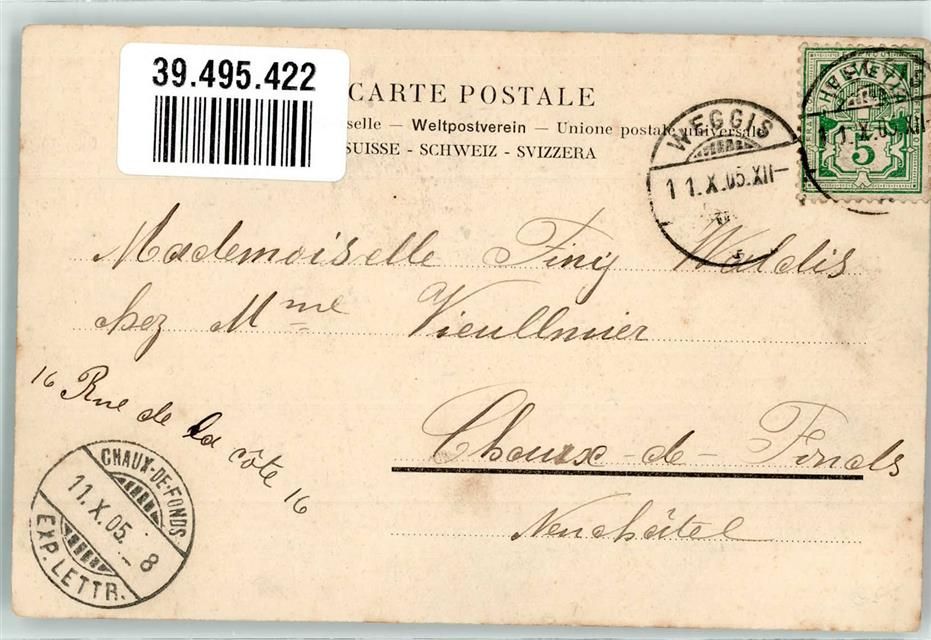 39.495.422
CARTE POSTALE
selle — Weltpostverein — Unione postale universale
SUISSE - SCHWEIZ - SVIZZERA
HELVETIA
5
WEGGIS
11.X.05.XII-
Mademoiselle Finy Waldis
chez Mme Vieullmier
16 Rue de la côte 16
Chaux-de-Fonds
Neuchâtel
CHAUX-DE-FONDS
11.X.05._8
EXP. LETTR.